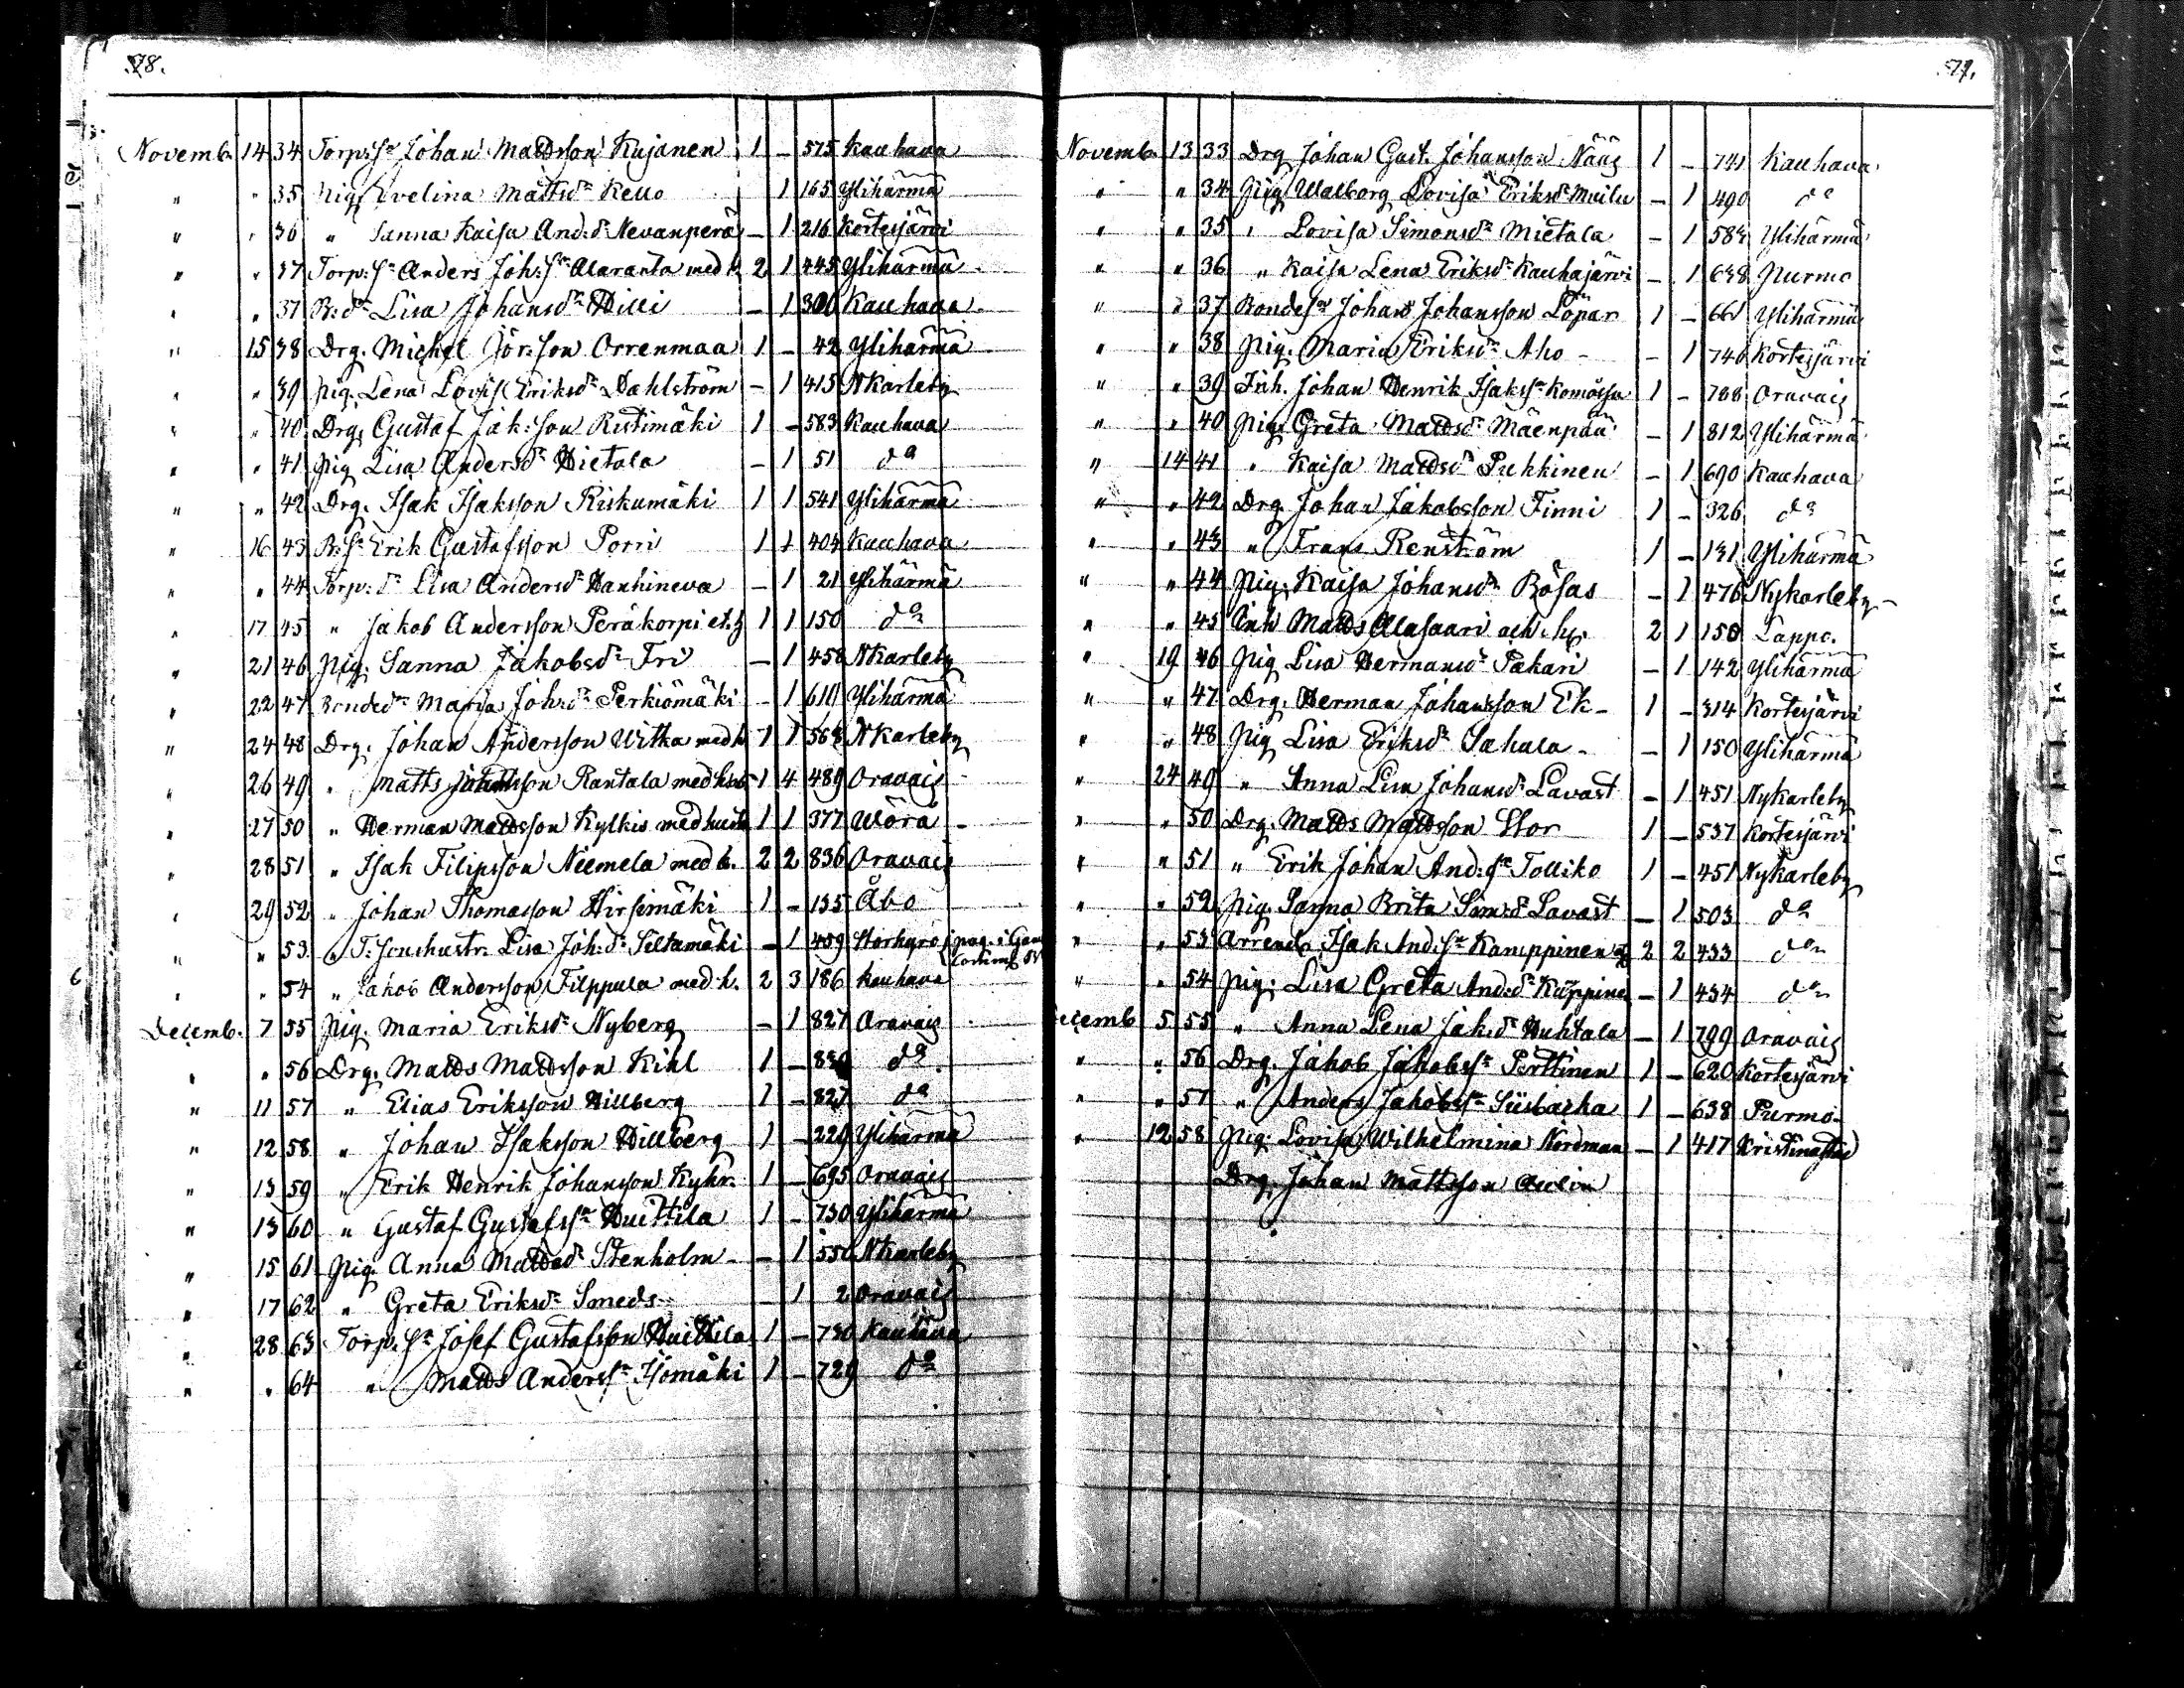 78.
Novemb. 14 34 Torp:sn Johan Mattsson Kujanen 1 - 575 Kauhava
" " 35 Pig. Evelina Mattsdr Kello 1 165 Ylihärmä
" " 36 " Sanna Kaisa And:dr Nevanperä - 1 216 Kortesjärvi
" " 37 Torp:sn Anders Joh:sn Alaranta med h. 2 1 445 Ylihärmä
" " 37 B:dr Lisa Johansdr Hilli - 1 300 Kauhava
" 15 38 Drg. Michel Jör:son Orrenmaa 1 - 42 Ylihärmä
" " 39 Pig. Lena Lovis Eriksdr Dahlström - 1 415 NKarleby
" " 40 Drg. Gustaf Jak:son Ristimäki 1 - 583 Kauhava
" " 41 Pig Lisa Andersdr Hietala - 1 51 do
" " 42 Drg. Isak Isaksson Riskumäki 1 1 541 Ylihärmä
" 16 43 B:sn Erik Gustafsson Porri 1 1 404 Kauhava
" " 44 Torp:dr Lisa Andersdr Hanhineva - 1 21 Ylihärmä
" 17 45 " Jakob Andersson Peräkorpi et.h 1 1 150 do
" 21 46 Pig. Sanna Jakobsdr Fri - 1 458 NKarleby
" 22 47 Bondedr Maria Joh:dr Perkiömäki - 1 611 Ylihärmä
" 24 48 Drg. Johan Andersson Witka med h 1 1 568 NKarleby
" 26 49 " Matts Rantala med 1 4 489 Oravais
" 27 50 " Herman Mattsson Kylkis med hustr 1 1 377 Wörå
" 28 51 " Isak Filipsson Niemela med h. 2 2 836 Oravais
" 29 52 " Johan Thomasson Hirsimäki 1 - 135 Åbo
" " 53 " T:sonshustr. Lisa Joh:dr Siltamäki - 1 459 Storkyro pag. i
" " 54 " Jakob Andersson Filppula med h. 2 3 186 Kauhava
Decemb. 7 55 Pig. Maria Eriksdr Nyberg - 1 827 Oravais
" " 56 Drg. Matts Mattsson Kihl 1 - 830 do
" 11 57 " Elias Eriksson Hillberg 1 - 827 do
" 12 58 " Johan Isaksson Hillberg 1 - 229 Ylihärmä
" 13 59 " Erik Henrik Johansson Kyhr. 1 - 695 Oravais
" 13 60 " Gustaf Gustafsn Huittila 1 - 730 Ylihärmä
" 15 61 Pig. Anna Mattsdr Stenholm - 1 550 NKarleby
" 17 62 " Greta Eriksdr Smeds - 1 2 Oravais
" 28 63 Torp:sn Josef Gustafsson Huittila 1 - 730 Kauhava
" " 64 " Matts Anderssn Isomäki 1 - 729 do
79.
Novemb. 13 33 Drg Johan Gust. Johansson Nääs 1 - 741 Kauhava
" " 34 Pig. Walborg Lovisa Eriksdr Muilu - 1 490 do
" " 35 " Lovisa Simonsdr Mietala - 1 583 Ylihärmä
" " 36 " Kaisa Lena Eriksdr Kauhajärvi - 1 638 Purmo
" " 37 Bondesn Johan Johansson Löpar 1 - 661 Ylihärmä
" " 38 Pig. Maria Eriksdr Aho - 1 746 Kortesjärvi
" " 39 Inh. Johan Henrik Isakssn Komossa 1 - 788 Oravais
" " 40 Pig. Greta Mattsdr Mäenpää - 1 812 Ylihärmä
" 14 41 " Kaisa Mattsdr Puhkinen - 1 690 Kauhava
" " 42 Drg. Johan Jakobsson Finni 1 - 326 do
" " 43 " Frans Renström 1 - 131 Ylihärmä
" " 44 Pig. Kaisa Johansdr Bösas - 1 476 Nykarleby
" " 45 Inh Matts Alasaari och h. 2 1 150 Lappo.
" 19 46 Pig Lisa Hermansdr Pakari - 1 142 Ylihärmä
" " 47 Drg. Herman Johansson Ek - 1 - 314 Kortesjärvi
" " 48 Pig Lisa Eriksdr Sahala - - 1 150 Ylihärmä
" 24 49 " Anna Lisa Johansdr Lavast - 1 451 Nykarleby
" " 50 Drg. Matts Mattsson Stor 1 - 537 Kortesjärvi
" " 51 " Erik Johan And:sn Tolliko 1 - 451 Nykarleby
" " 52 Pig. Sanna Brita Sim:dr Lavast - 1 503 do
" " 53 Arrend. Isak And:sn Kamppinen 2 2 433 do
" " 54 Pig. Lisa Greta And:dr Kuppine - 1 434 do
Decemb 5 55 " Anna Lena Jak:dr Huhtala - 1 799 Oravais
" " 56 Drg. Jakob Jakobssn Perttinen 1 - 620 Kortesjärvi
" " 57 " Anders Jakobssn Siisbacka 1 - 638 Purmo
" 12 58 Pig. Lovisa Wilhelmina Nordman - 1 417 Kristinastad
Drg. Johan Mattsson Aulin